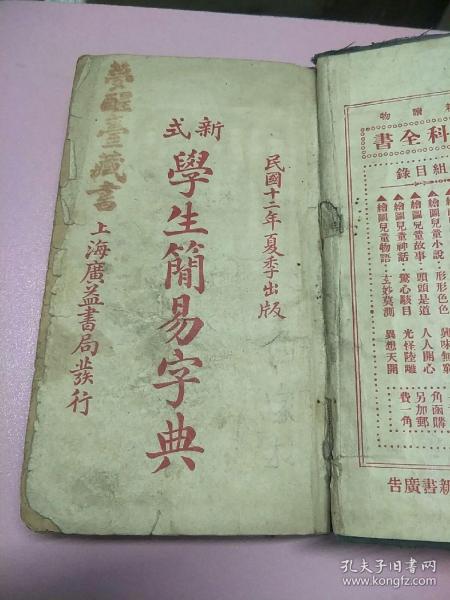 民國十二年夏季出版
新式
學生簡易字典
上海廣益書局發行
夢醒臺藏書
物
科全書
組目錄
▲繪圖兒童小說·形形色色
▲繪圖兒童故事·頭頭是道
▲繪圖兒童神話·驚心駭目
▲繪圖兒童物語·玄妙莫測
人人開心
光怪陸離
異想天開
角函購
另加郵
費一角
新書廣告
孔夫子旧书网
www.kongfz.com